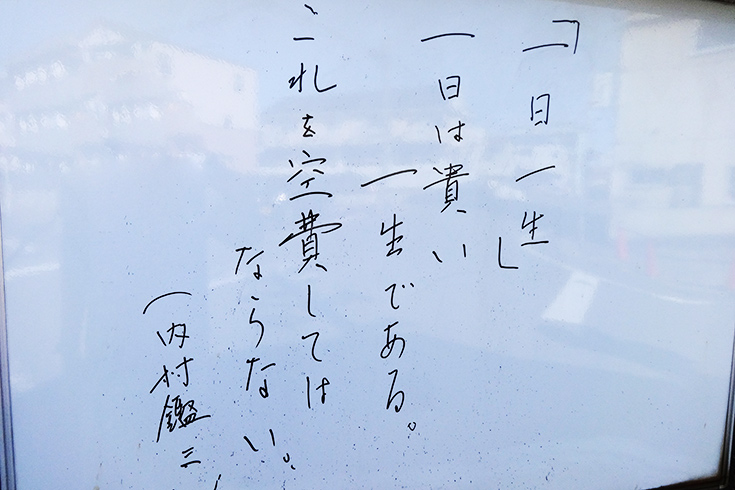 「一日一生」
一日は貴い
一生である。
これを空費しては
ならない。
(内村鑑三)